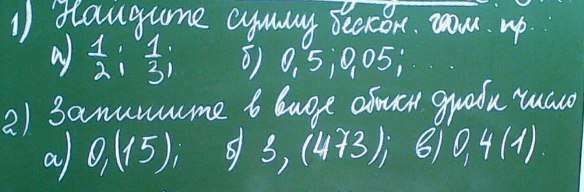 1) Найдите сумму бескон. геом. пр.:
а) 1/2; 1/3; б) 0,5; 0,05; ...
2) Запишите в виде обыкн дроби число
а) 0,(15); б) 3,(473); в) 0,4(1).